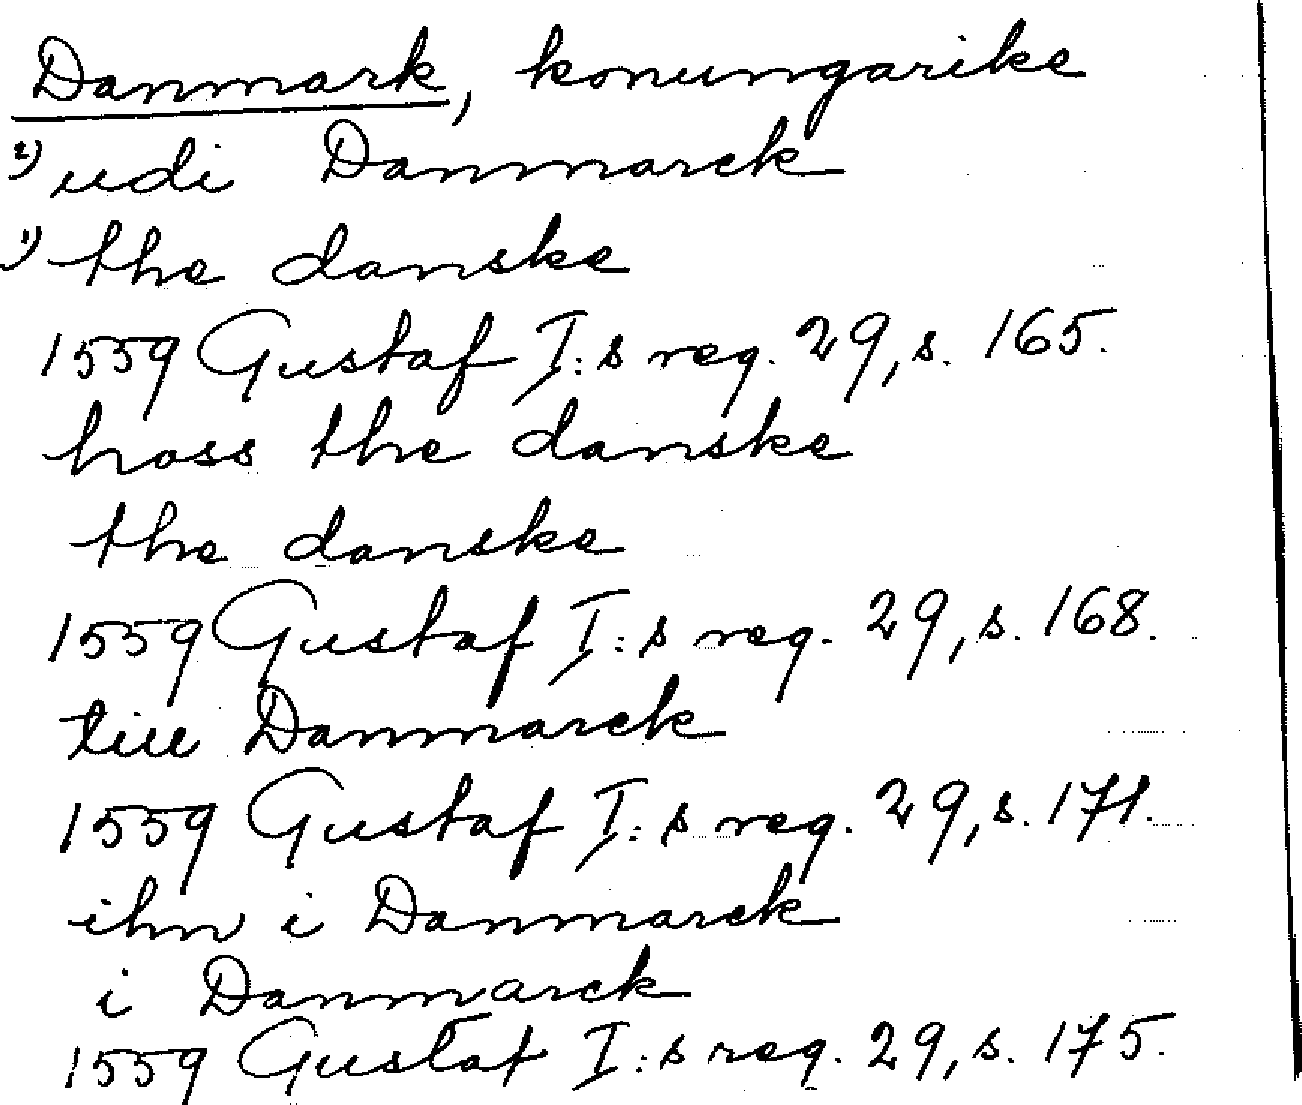 Danmark, konungarike
2) udi Danmarck
1) the danske
1559 Gustaf I:s reg. 29, s. 165.
hoss the danske
the danske
1559 Gustaf I:s reg. 29, s. 168.
till Danmarck
1559 Gustaf I:s reg. 29, s. 171.
ihn i Danmarck
i Danmarck
1559 Gustaf I:s reg. 29, s. 175.